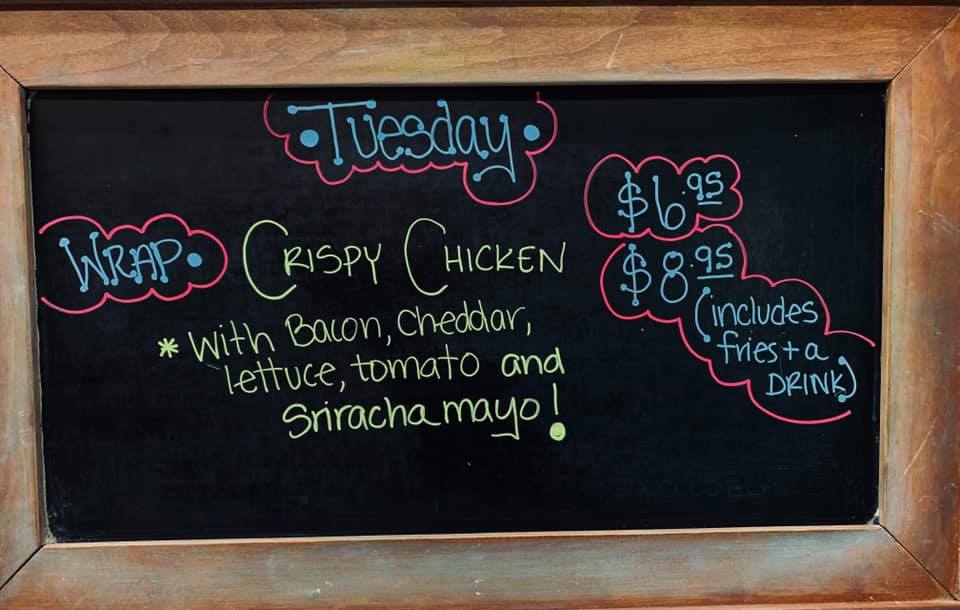 • Tuesday •
$6.95
WRAP • CRISPY CHICKEN
$8.95
(includes
fries + a
DRINK)
* With Bacon, Cheddar,
lettuce, tomato and
Sriracha mayo!